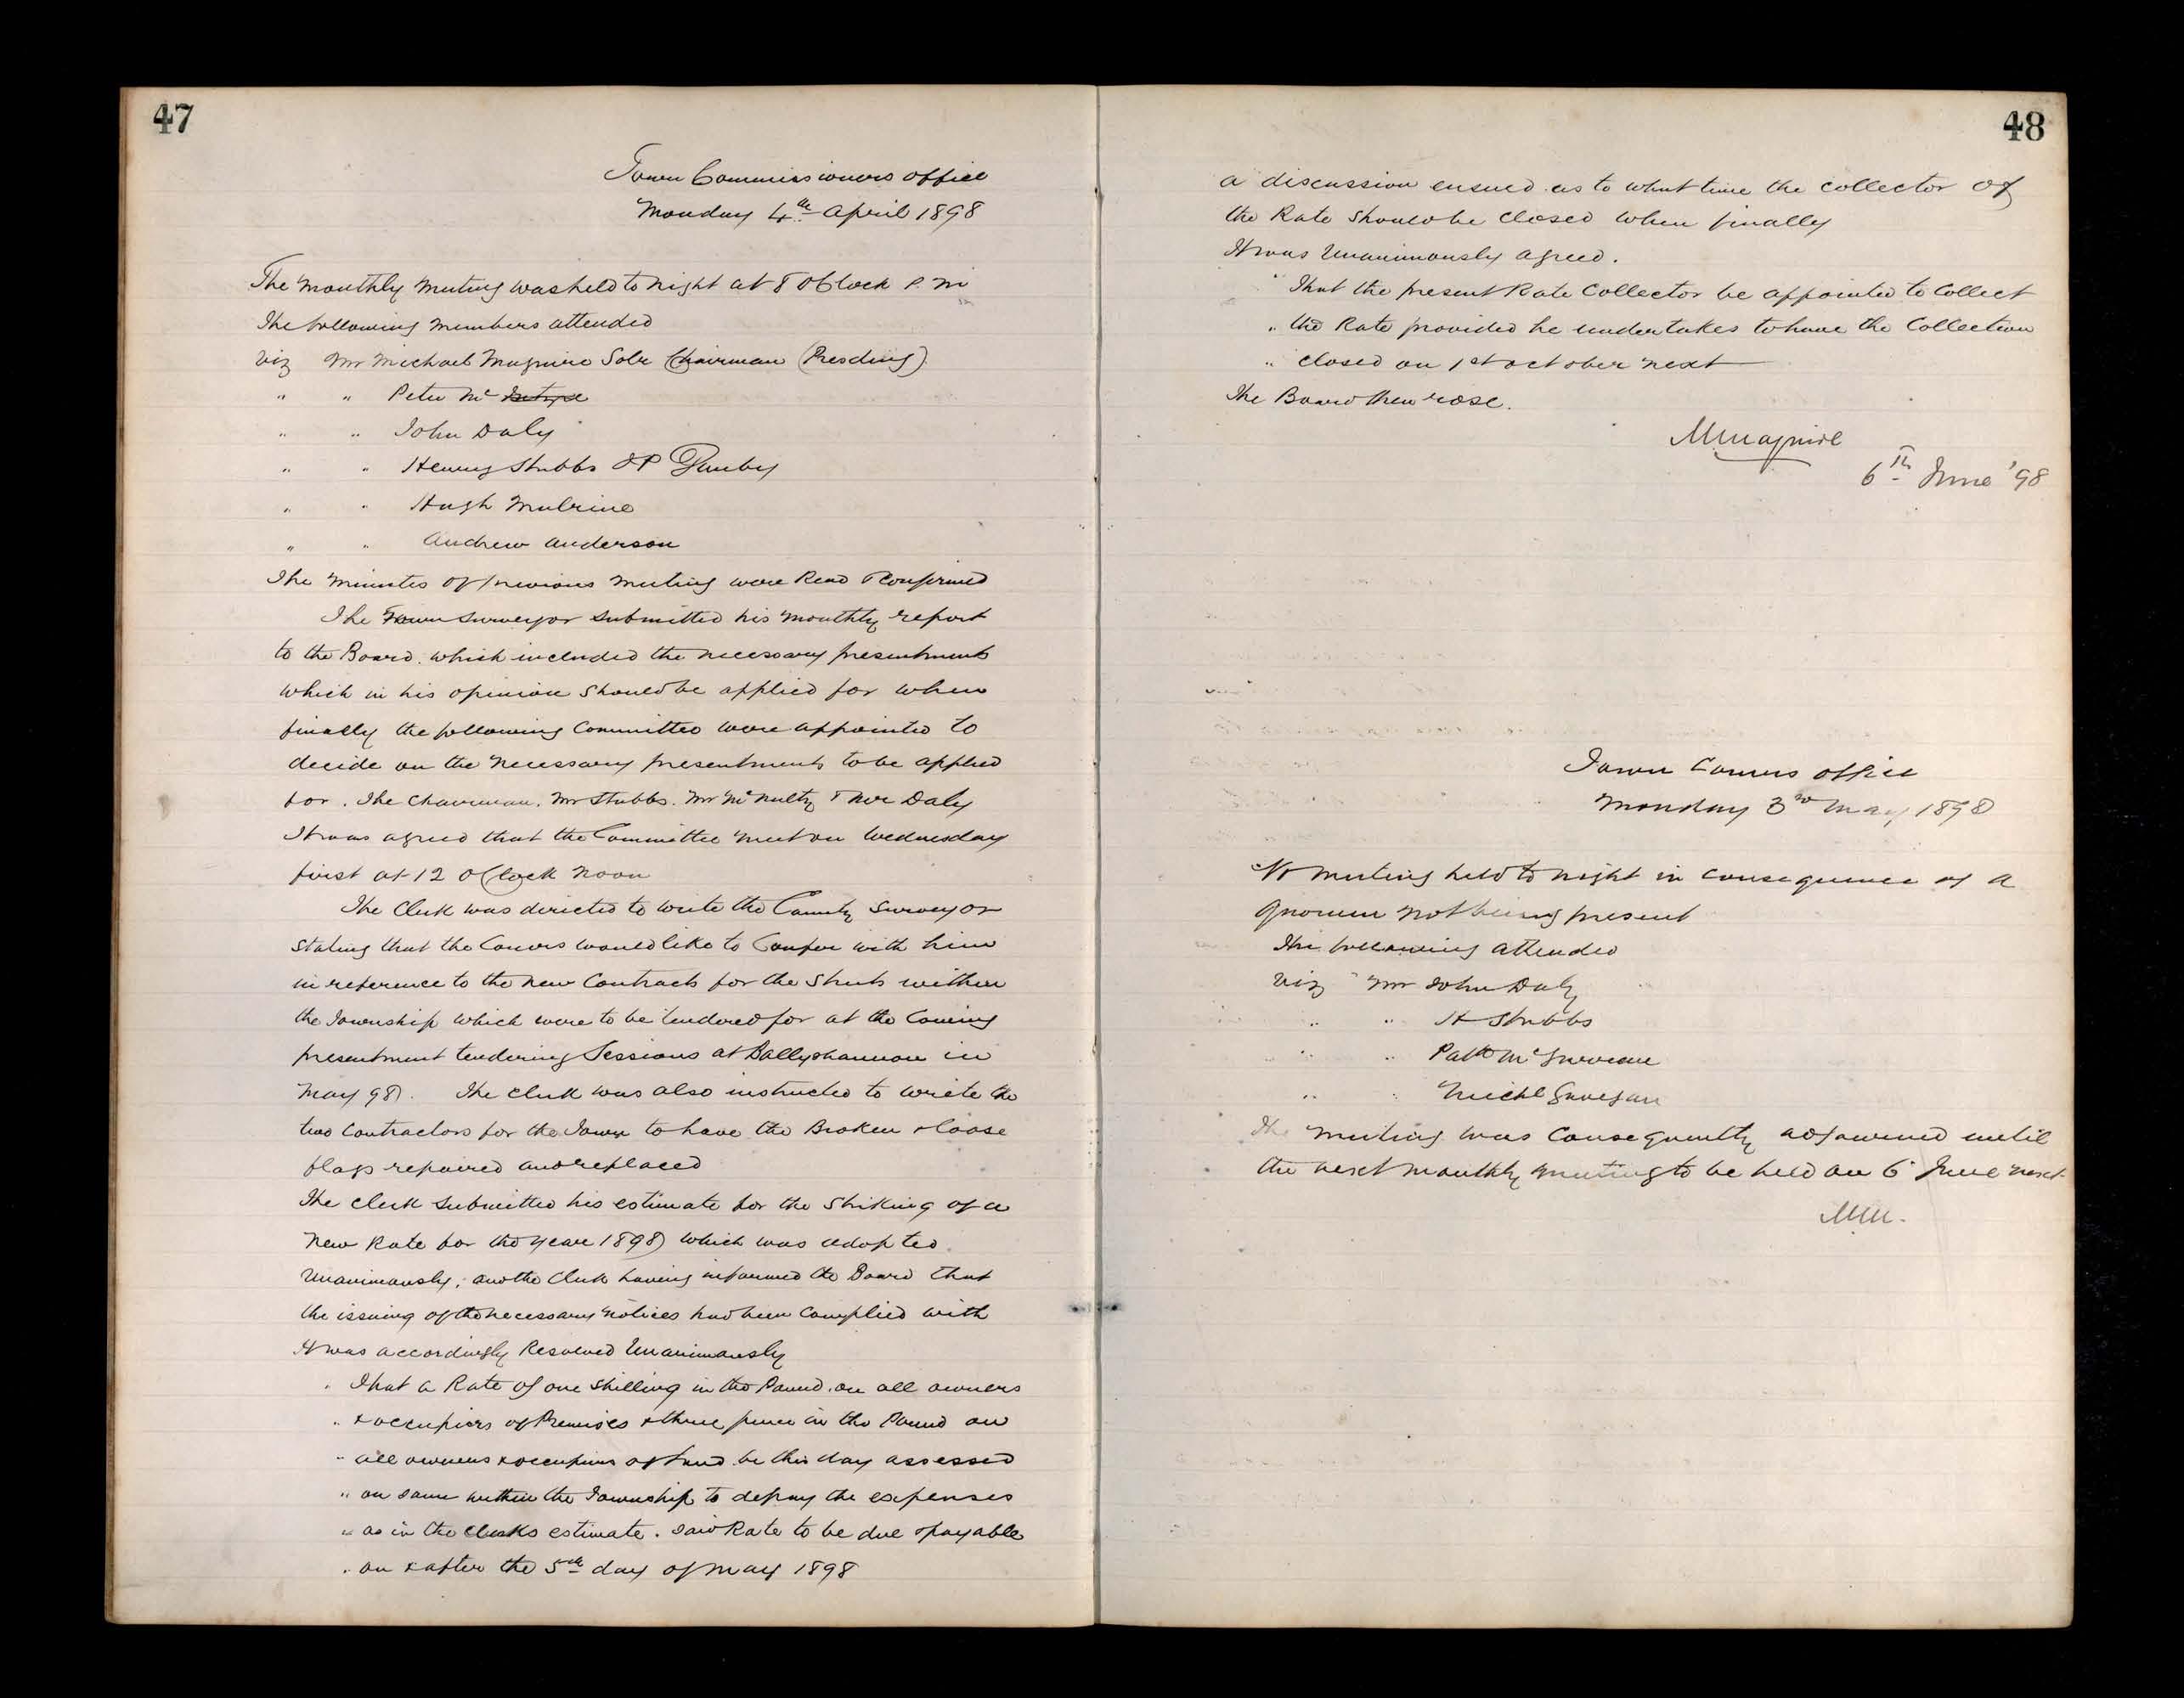 47
Town Commissioners office
Monday 4th April 1898
The monthly meeting was held to night at 8 OClock P.m
The following members attended
Viz Mr Michael Maguire Solr Chairman (Presding)
" " Peter Mc
" " John Daly
" " Henry Stubbs JP
" " Hugh Mulrine
" " Andrew Anderson
The minutes of previous meeting were Read & Confirmed
The Town Surveyor submitted his monthly report
to the Board. which included the necessary presentments
which in his opinion should be applied for when
finally the following Committee were appointed to
decide on the necessary presentments to be applied
for. The Chairman. Mr Stubbs. Mr McNulty & Mr Daly
It was agreed that the Committee meet on Wednesday
first at 12 OClock noon
The Clerk was directed to write the County Surveyor
stating that the Comrs would like to Confer with him
in reference to the new Contracts for the Streets within
the Township which were to be tendered for at the Coming
presentment tendering Sessions at Ballyshannon in
May 98. The Clerk was also instructed to write the
two Contractors for the Town to have the Broken & loose
flags repaired and replaced
The Clerk submitted his estimate for the Striking of a
new Rate for the year 1898 which was adopted
Unanimously, and the Clerk having informed the Board that
the issuing of the necessary notices had been Complied with
It was accordingly Resolved Unanimously
" That a Rate of one Shilling in the Pound. on all owners
" & occupiers of Premises & three pence in the Pound on
" all owners & occupiers of Land be this day assessed
" on same within the Township to defray the expenses
" as in the Clerks estimate. Said Rate to be due & payable
" on & after the 5th day of May 1898
48
a discussion ensued as to what time the collector of
the Rate should be Closed when finally
It was Unanimously agreed.
" That the present Rate Collector be appointed to Collect
" the Rate provided he undertakes to have the Collection
" closed on 1st october next
The Board then rose.
MMaguire
6th June '98
Town Comrs office
Monday 3rd May 1898
No meeting held to night in Consequence of a
quorum not being present
The following attended
Viz Mr John Daly
" " H Stubbs
" " Patk Mc
" " Michl
The meeting was Consequently adjourned until
the next monthly meeting to be held on 6 June next
MM.